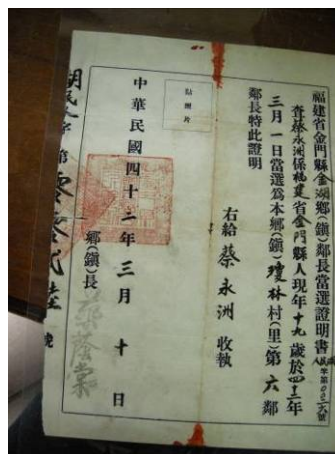 福建省金門縣金湖鄉(鎮)鄰長當選證明書
查蔡永洲係福建省金門縣人現年十九歲於四十二年
三月一日當選為本鄉(鎮)瓊林村(里)第六鄰
鄰長特此證明
右給蔡永洲收執
貼照片
中華民國四十二年三月十日
鄉(鎮)長